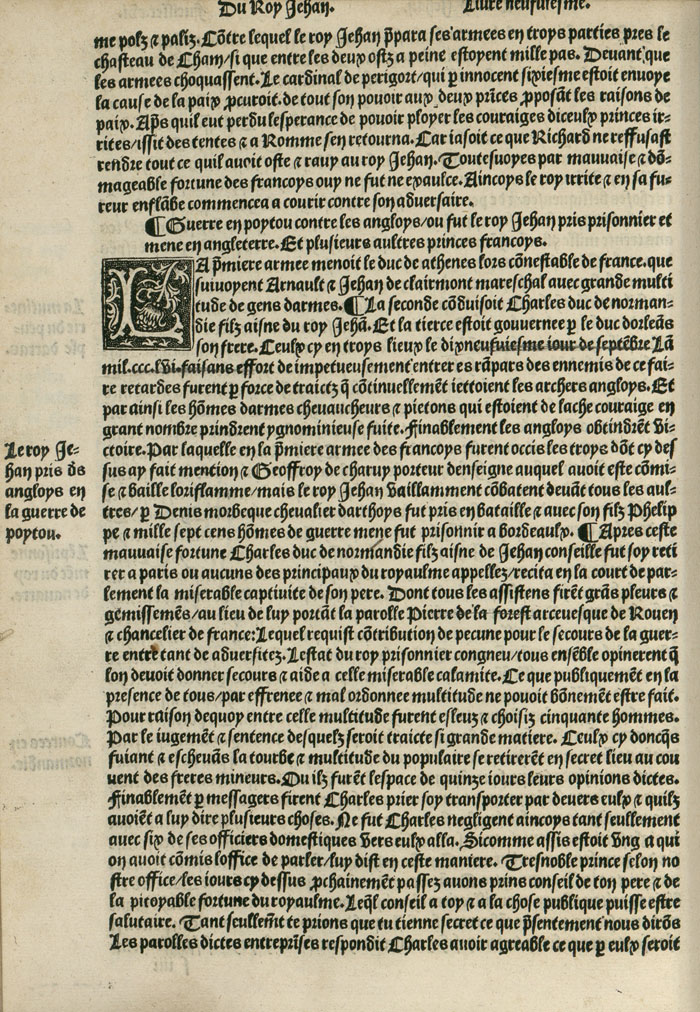 Du Roy Jehan. Livre neufuiesme.
me polz ⁊ paliz. Cõtre lequel le roy Jehan p̃para ses armees en troys parties pres le
chasteau de Cham/si que entre les deux ostz a peine estoyent mille pas. Deuant que
les armees choquassent. Le cardinal de perigort/qui ꝑ innocent sixiesme estoit enuoye
la cause de la paix ꝓcuroit. de tout son pouoir aux deux prĩces ꝓposãt les raisons de
paix. Ap̃s quil eut perdu lesperance de pouoir ployer les couraiges diceulx princes ir⸗
rites/issit des tentes ⁊ a Romme sen retourna. Car iasoit ce que Richard ne reffusast
rendre tout ce quil auoit oste ⁊ rauy au roy Jehan. Toutesuoyes par mauuaise ⁊ dõ⸗
mageable fortune des francoys ouy ne fut ne exaulce. Aincoys le roy irrite ⁊ en sa fu⸗
reur enflãbe commencea a courir contre son aduersaire.
¶Guerre en poytou contre les angloys/ou fut le roy Jehan pris prisonnier et
mene en angleterre. Et plusieurs aultres princes francoys.
LA p̃miere armee menoit le duc de athenes lors cõnestable de france. que
suiuoyent Arnault ⁊ Jehan de clairmont mareschal auec grande multi
tude de gens darmes. ¶La seconde cõduisoit Charles duc de norman⸗
die filz aisne du roy Jehã. Et la tierce estoit gouuernee ꝑ le duc dorleãs
son frere. Ceulx cy en troys lieux le dixneufuiesme iour de septẽbre Lã
mil.ccc.lvi.faisans effort de impetueusement entrer es rãpars des ennemis de ce fai⸗
re retardes furent ꝑ force de traictz q̃ cõtinuellemẽt iettoient les archers angloys. Et
par ainsi les hõmes darmes cheuaucheurs ⁊ pietons qui estoient de lache couraige en
grant nombre prindrent ygnominieuse fuite. Finablement les angloys obtindrẽt vi⸗
ctoire. Par laquelle en la p̃miere armee des francoys furent occis les troys dõt cy des
sus ay fait mention ⁊ Geoffroy de charuy porteur denseigne auquel auoit este cõmi⸗
se ⁊ baille loriflamme/mais le roy Jehan vaillamment cõbatent deuãt tous les aul⸗
tres/ꝑ Denis morbeque cheualier darthoys fut pris en bataille ⁊ auec son filz Phelip
pe ⁊ mille sept cens hõmes de guerre mene fut prisonnir a bordeaulx. ¶Apres ceste
mauuaise fortune Charles duc de normandie filz aisne de Jehan conseille fut soy reti
rer a paris ou aucuns des principaux du royaulme appellez/recita en la court de par⸗
lement la miserable captiuite de son pere. Dont tous les assistens firẽt grãs pleurs ⁊
gemissemẽs/au lieu de luy portãt la parolle Pierre de la forest arceuesque de Rouen
⁊ chancelier de france: Lequel requist cõtribution de pecune pour le secours de la guer⸗
re entre tant de aduersitez. Lestat du roy prisonnier congneu/tous ensẽble opinerent q̃
lon deuoit donner secours ⁊ aide a celle miserable calamite. Ce que publiquemẽt en la
presence de tous/par effrenee ⁊ mal ordonnee multitude ne pouoit bõnemẽt estre fait.
Pour raison dequoy entre celle multitude furent esleuz ⁊ choisiz cinquante hommes.
Par le iugemẽt ⁊ sentence desquelz seroit traicte si grande matiere. Ceulx cy doncq̃s
fuiant ⁊ escheuãs la tourbe ⁊ multitude du populaire se retirerẽt en secret lieu au cou
uent des freres mineurs. Ou ilz furẽt lespace de quinze iours leurs opinions dictes.
Finablemẽt ꝑ messagers firent Charles prier soy transporter par deuers eulx ⁊ quilz
auoiẽt a luy dire plusieurs choses. Ne fut Charles negligent aincoys tant seullement
auec six de ses officiers domestiques vers eulx alla. Sicomme assis estoit vng a qui
on auoit cõmis loffice de parler/luy dist en ceste maniere. Tresnoble prince selon no
stre office/les iours cy dessus ꝓchainemẽt passez auons prins conseil de ton pere ⁊ de
la pitoyable fortune du royaulme. Leq̃l conseil a toy ⁊ a la chose publique puisse estre
salutaire. Tant seullem̃t te prions que tu tienne secret ce que p̃sentement nous dirõs
Les parolles dictes entreprĩses respondit Charles auoir agreable ce que ꝑ eulx seroit
Le roy Je⸗
han pris ds̃
angloys en
la guerre de
poytou.